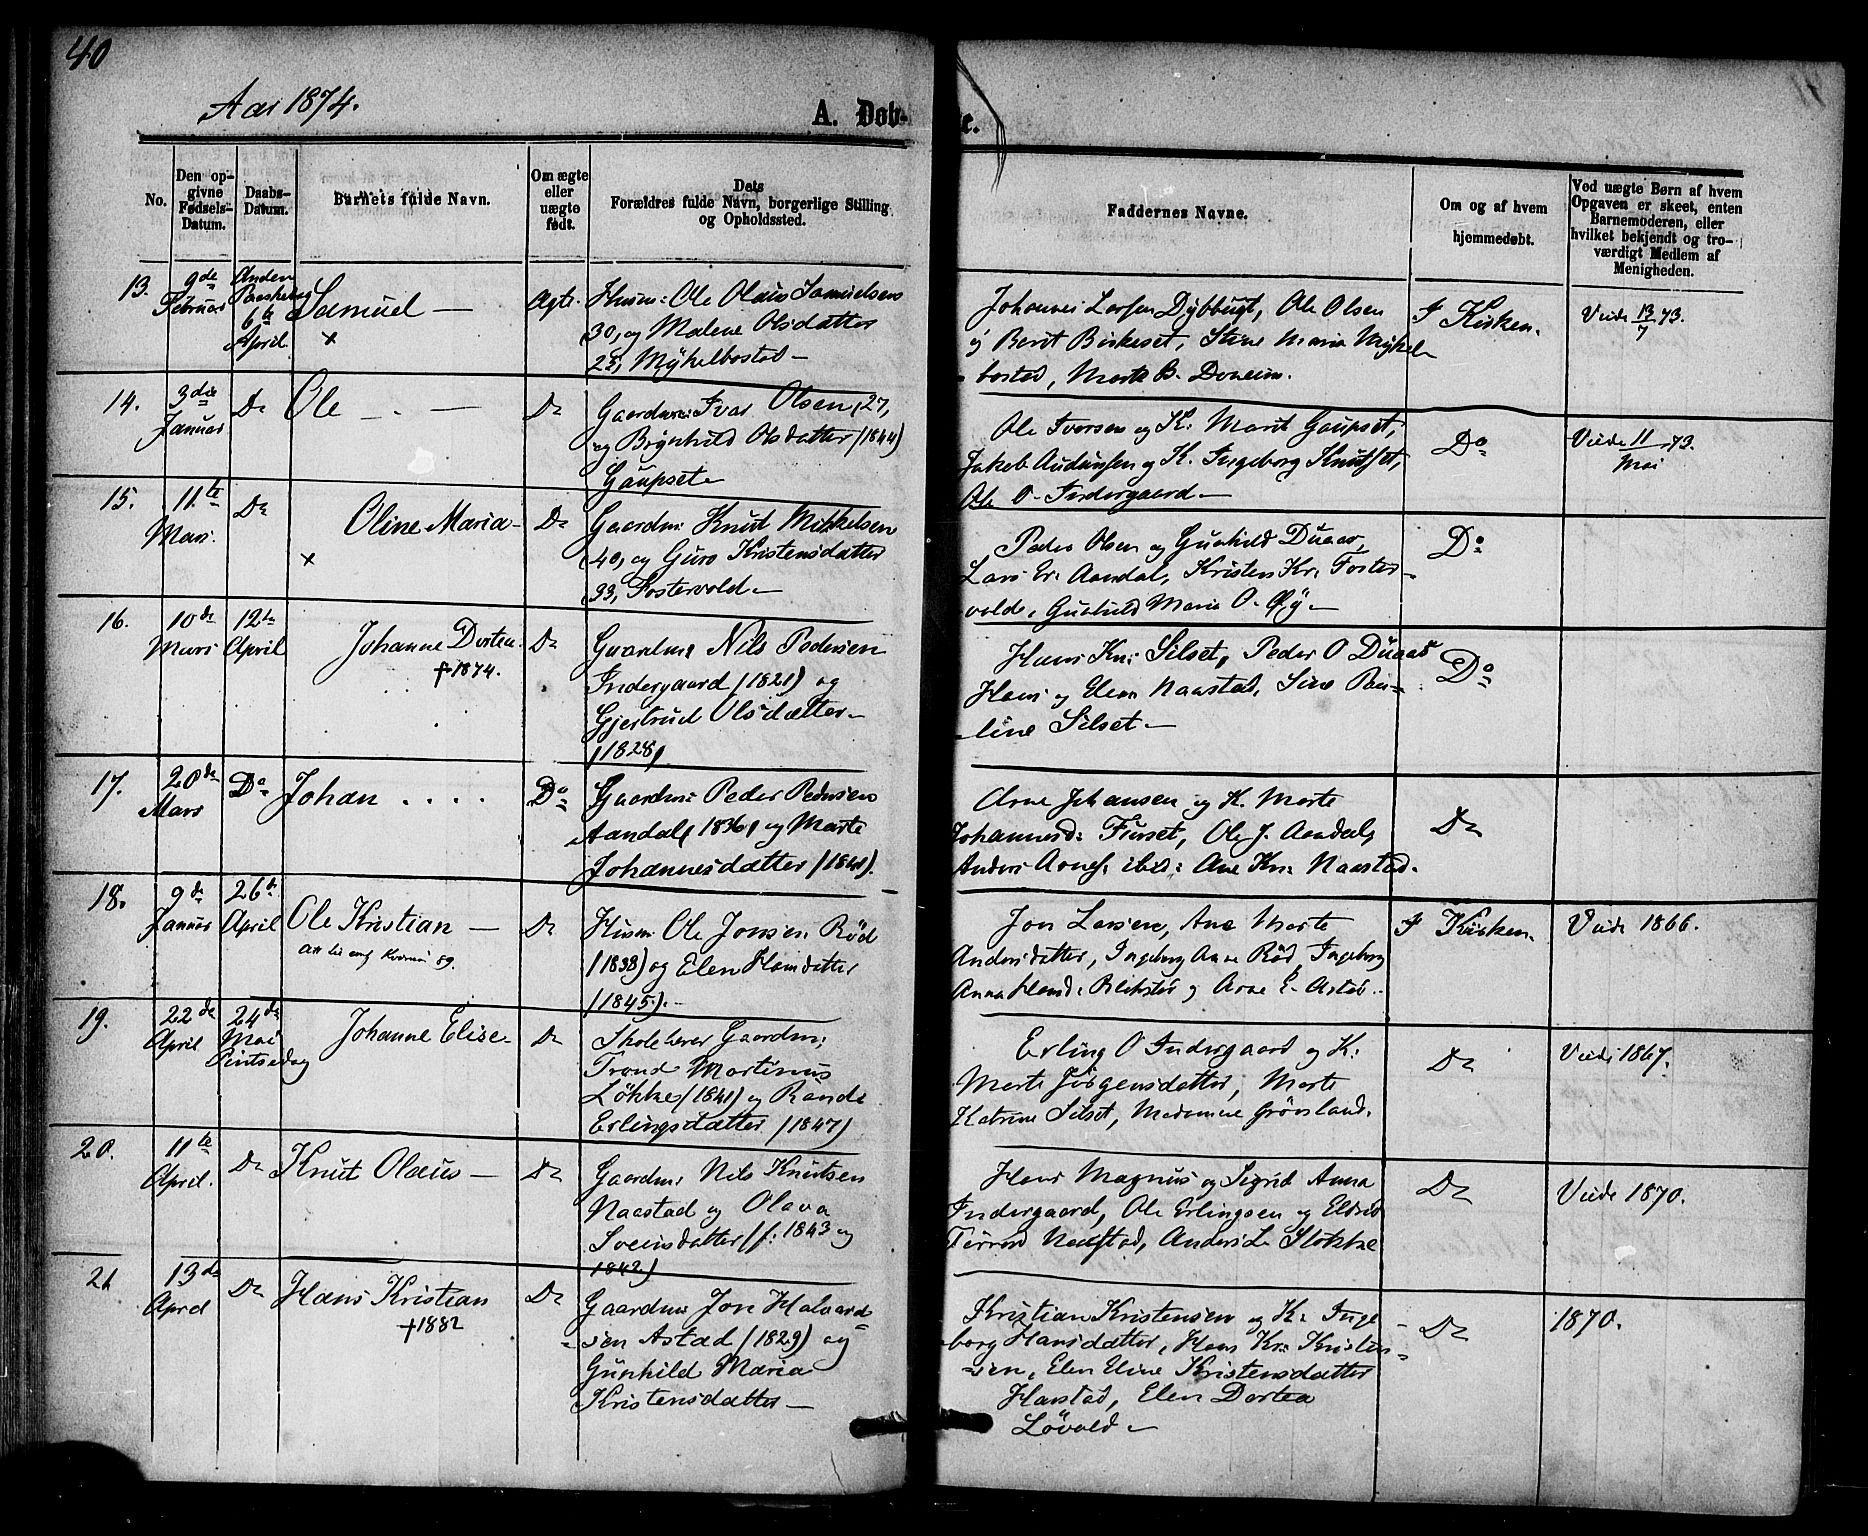 40
Aar 1874.
A. Døb-
te.
No.
Den op-
givne
Fødsels-
Datum.
Daabs-
Datum.
Barnets fulde Navn.
Om ægte
eller
uægte
født.
Dets
Forældres fulde Navn, borgerlige Stilling
og Opholdssted.
Faddernes Navne.
Om og af hvem
hjemmedøbt.
Ved uægte Børn af hvem
Opgaven er skeet, enten
Barnemoderen, eller
hvilket bekjendt og tro-
værdigt Medlem af
Menigheden.
13.
9de
Februar
Anden
Paaskedag
6te
April
Samuel —
×
Ægte.
Husm: Ole Olaus Samuelsen
30, og Malene Olsdatter
25, Myklebostad —
Johannes Larsen Dybbugt, Ole Olsen
og Berit Birkeset, Stine Maria Mykel-
bostad, Marte B.
I Kirken.
Viede 13/7 73.
14.
3die
Januar
Do
Ole — . —
Do
Gaardm: Ivar Olsen, 27,
og Brynhild Olsdatter (1844)
Gaupset.
Ole Iversen og K: Marit Gaupset,
Jakob Audunsen og K. Ingeborg Knutset,
Ole O. Indergaard —
Do
Viede 11/Mai 73.
15.
11te
Mars.
Do
Oline Maria —
×
Do
Gaardm: Knut Mikkelsen
40, og Guro Kristensdatter
33, Fostervold —
Peder Olsen og Gunhild Duaas,
Lars Er. Aandal, Kristen Kr: Foster-
vold, Gunhild Maria O. Øy —
Do
16.
10de
Mars
12te
April
Johanne Dorten.
†1874.
Do
Gaardm: Nils Pedersen
Indergaard (1821) og
Gjertrud Olsdatter —
(1828)
Hans Kn: Silset, Peder O Duaas
Hans og Elen Naastad, Sine Pau-
line Silset —
Do
17.
20de
Mars
Do
Johan . . . .
Do
Gaardm: Peder Pedersen
Aandal (1836) og Marte
Johannesdatter (1841).
Arne Johansen og K. Marte
Johannesd: Furset, Ole J. Aandal,
Anders Arnes: ibid: Ane Kn: Naastad.
Do
18.
9de
Januar
26de
April
Ole Kristian —
Do
Husm Ole Jonsen Rød
(1838) og Elen Hansdatter
(1845). —
Jon Larsen, Ane Marte
Andersdatter, Ingeborg Anne Rød, Ingeborg
Anna Hansd: og Arne E. Astad.
I Kirken.
Viede 1866.
19.
22de
April
24de
Mai
Pintsedag
Johanne Elise —
Do
Skolelærer Gaardm:
Trond Martinus
Løkke (1841) og Randi
Erlingsdatter (1847)
Erling O Indergaard og K:
Marte Jørgensdatter, Marte
Katrine Silset, Madamme Grønsland.
Do
Viedi 1867.
20.
11te
April.
Do
Knut Olaus —
Do
Gaardm: Nils Knutsen
Naastad og Olava
Sveinsdatter (f: 1843 og
1842)
Hans Magnus og Sigrid Anna
Indergaard, Ole Erlingsen og
Naastad, Anders L. Stokke
Do
Viede 1870.
21
13de
April
Do
Hans Kristian
†1882
Do
Gaardm: Jon Halvard-
sen Astad (1829) og
Gunhild Maria
Kristensdatter —
Kristian Kristensen og K. Inge-
borg Hansdatter, Hans Kr: Kristen-
sen, Elen Eline Kristensdatter
Harstad, Elen Dortea
Løvold —
Do
1870.